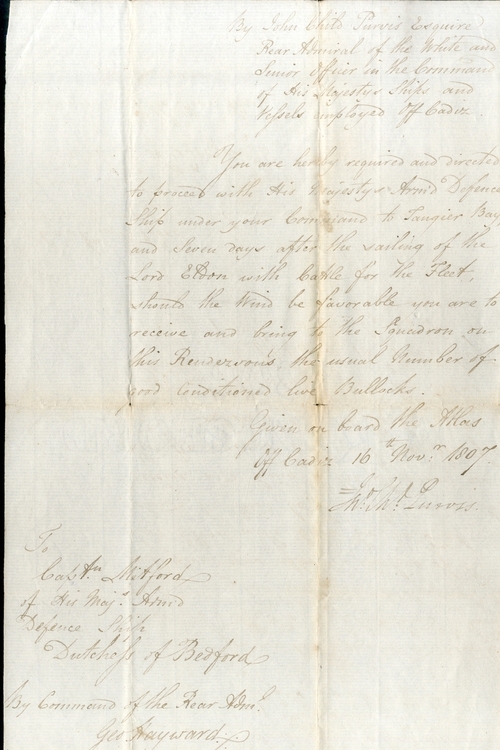 By John Child Purvis Esquire
Rear Admiral of the White and
Senior Officer in the Command
of His Majestys Ships and
Vessels employed off Cadiz.
You are hereby required and directed
to proceed with His Majestys Arm'd Defence
Ship under your Command to Tangier Bay,
and Seven days after the sailing of the
Lord Eldon with Cattle for the Fleet,
should the Wind be favorable you are to
receive and bring to the Squadron on
this Rendezvous, the usual Number of
good conditioned live Bullocks.
Given on board the Atlas
off Cadiz 16th Novr. 1807.
Jno. Chd. Purvis
To
Captn. Mitford
of His Majs. Armd
Defence Ship
Dutchess of Bedford
By Command of the Rear Adml.
Geo Hayward